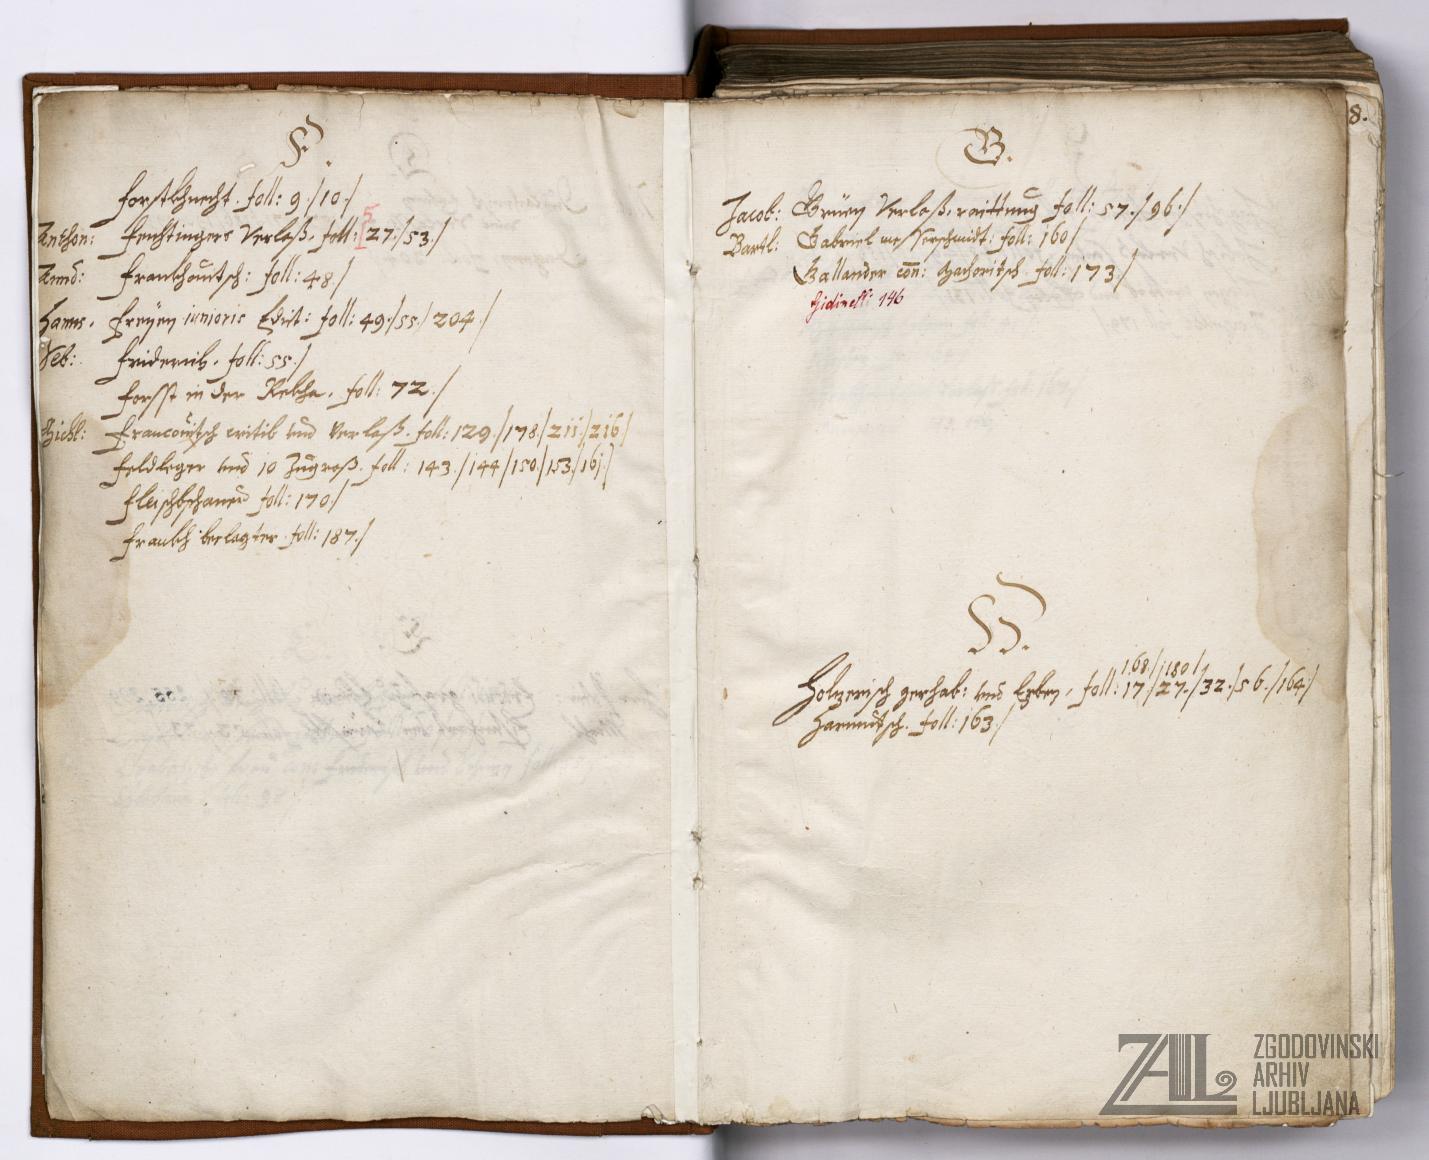 F.
Forstkhnecht. foll: 9./10./
Anthon: Feichtingers Verlaß. foll: 27./53./
5
Annd: Frankhouitsch: foll: 48./
Hanns. Freyen iunioris Edict: foll: 49./55./204./
Seb: Friderich. foll: 55./
Forsst in der Rekha. foll: 72./
Michl: Francouitsch critib und Verlaß. foll: 129./178./211/216/
Feldleger und 10 Zugroß. foll: 143./144/150/153./161/
Fleischbschaueu foll: 170./
Frankh beclagter. foll: 187./
8.
G.
Jacob: Grüen Verlaß. raittung foll: 57./96./
Bartl: Gabriel Messerschmidt: foll: 160/
Gallander con: Machoritsch. foll: 173./
Gidinelli 146
H.
168./180/
Holzerisch gerhab: und Erben. foll: 17./27./32./56./164./
Harnnitsch. foll: 163./
ZAL
ZGODOVINSKI
ARHIV
LJUBLJANA